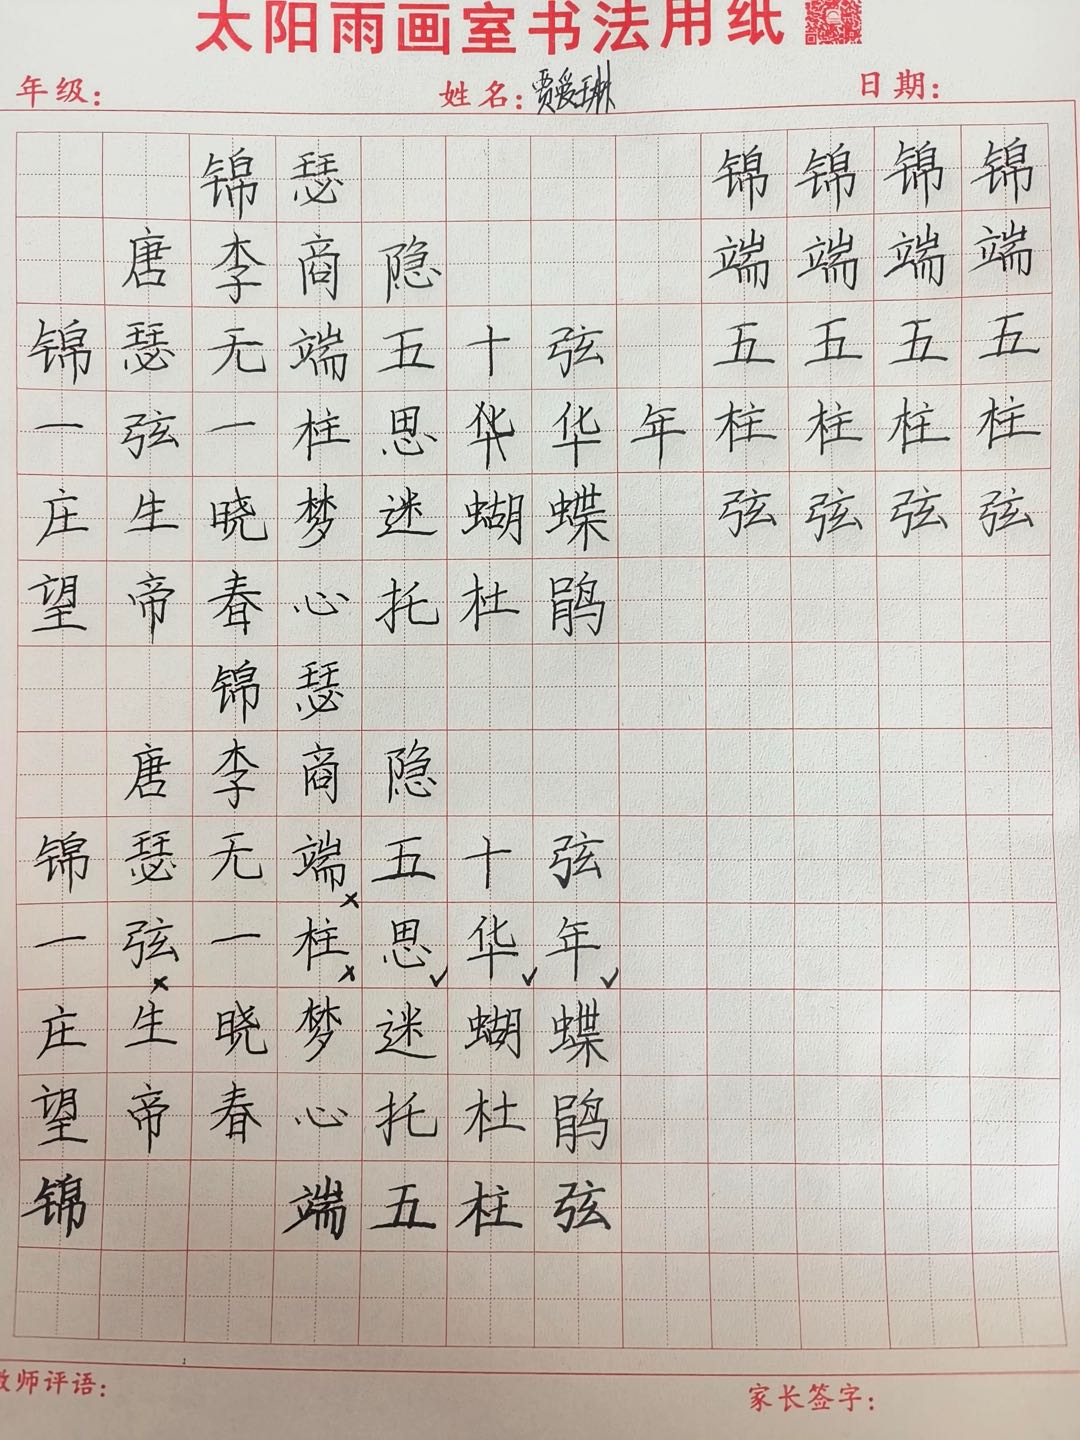 太阳雨画室书法用纸
年级： 姓名：贾爱琳 日期：
锦瑟 锦锦锦锦
唐李商隐 端端端端
锦瑟无端五十弦 五五五五
一弦一柱思华华年 柱柱柱柱
庄生晓梦迷蝴蝶 弦弦弦弦
望帝春心托杜鹃
锦瑟
唐李商隐
锦瑟无端五十弦
一弦一柱思华年
庄生晓梦迷蝴蝶
望帝春心托杜鹃
锦 端五柱弦
教师评语： 家长签字：